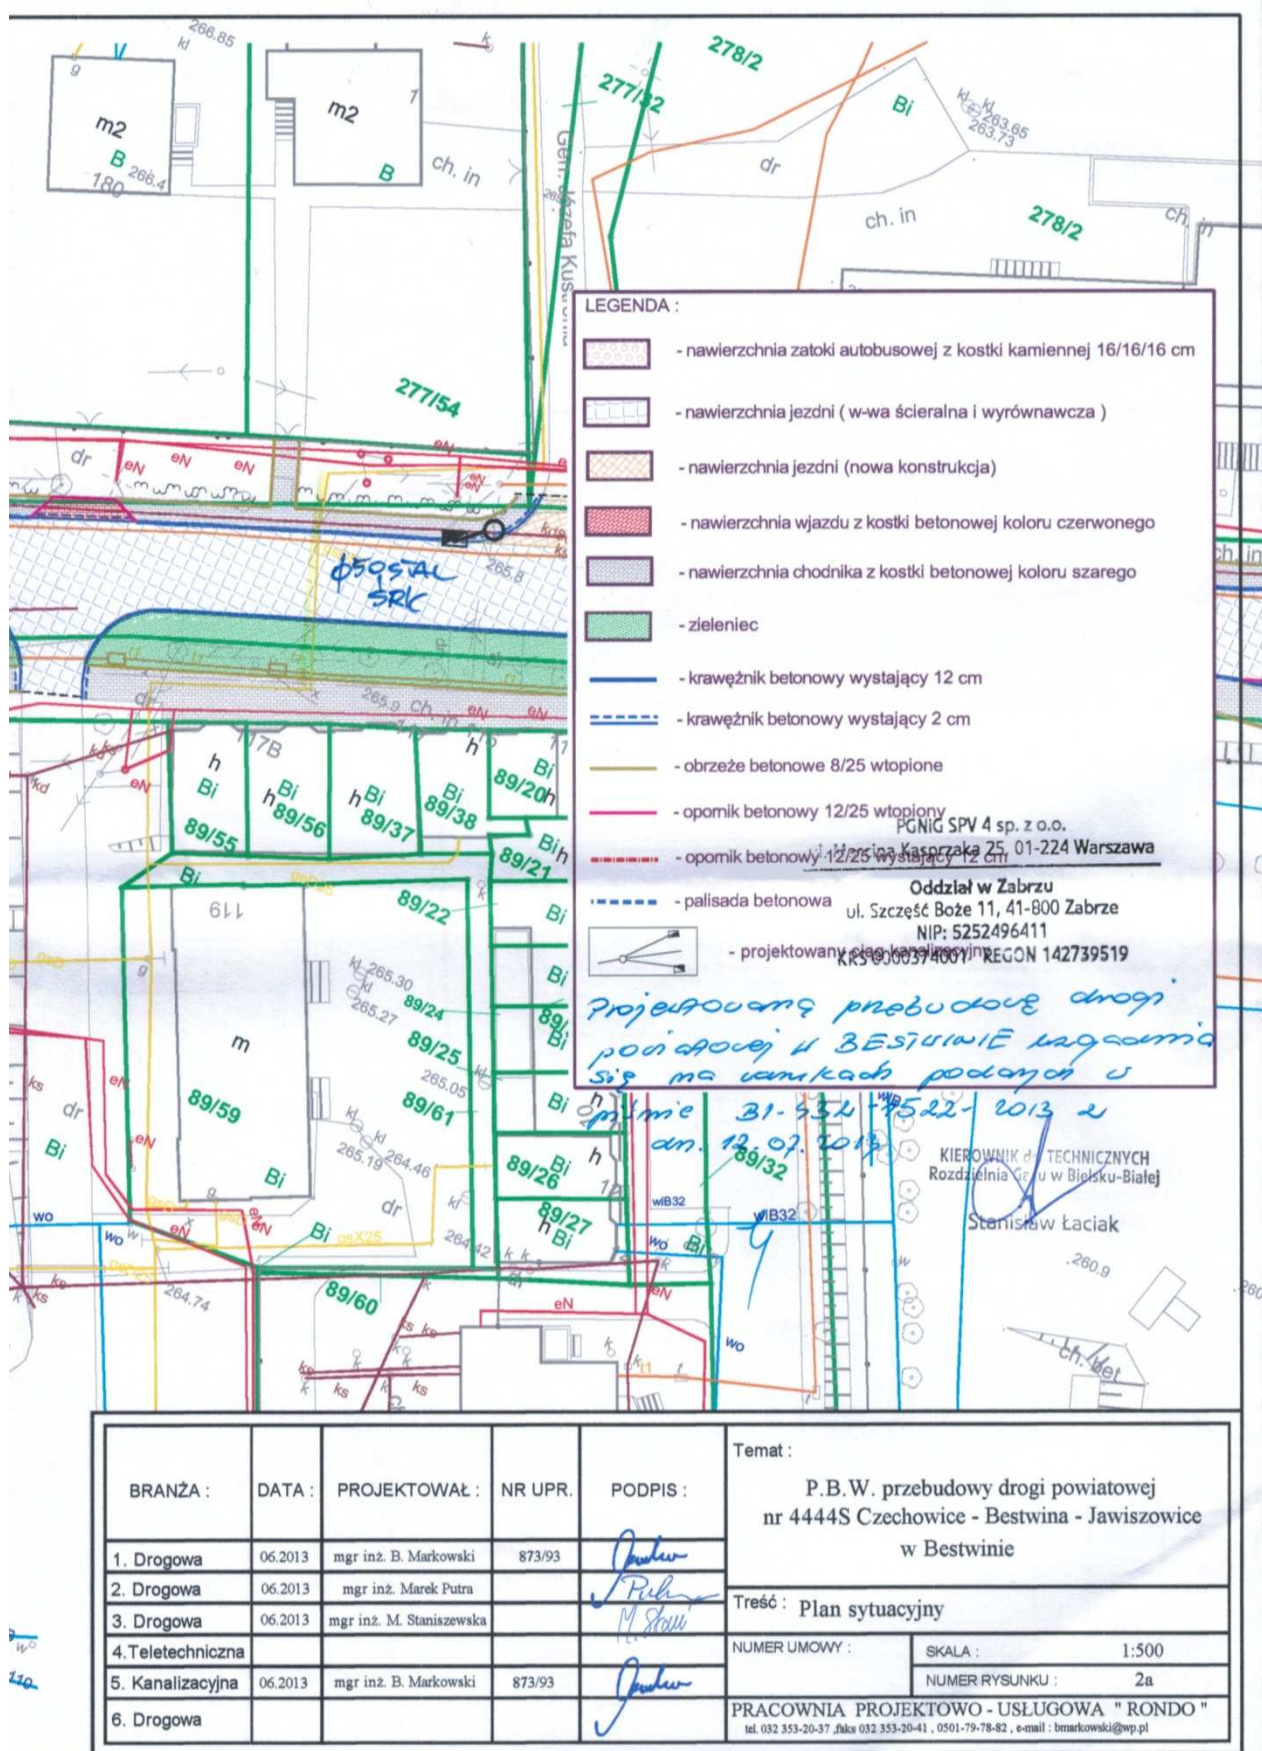 266.85
kl
k
278/2
277/32
g
m2
B
180
266.4
m2
1
B
ch. in
Gen. Józefa Kustronia
Bi
kl
kl
263.65
263.73
dr
ch. in
278/2
ch. in
277/54
LEGENDA :
- nawierzchnia zatoki autobusowej z kostki kamiennej 16/16/16 cm
- nawierzchnia jezdni ( w-wa ścieralna i wyrównawcza )
- nawierzchnia jezdni (nowa konstrukcja)
- nawierzchnia wjazdu z kostki betonowej koloru czerwonego
- nawierzchnia chodnika z kostki betonowej koloru szarego
- zieleniec
- krawężnik betonowy wystający 12 cm
- krawężnik betonowy wystający 2 cm
- obrzeże betonowe 8/25 wtopione
- opornik betonowy 12/25 wtopiony
- opornik betonowy 12/25 wystający 12 cm
- palisada betonowa
- projektowany ciąg kanalizacyjny
PGNiG SPV 4 sp. z o.o.
ul. Marcina Kasprzaka 25, 01-224 Warszawa
Oddział w Zabrzu
ul. Szczęść Boże 11, 41-800 Zabrze
NIP: 5252496411
KRS 0000374001 REGON 142739519
Projektowaną przebudowę drogi
powiatowej w BESTWINIE uzgadnia
się na warunkach podanych w
piśmie
dn. 12.07.2013
KIEROWNIK TECHNICZNYCH
Rozdzielnia Gazu w Bielsku-Białej
Stanisław Łaciak
dr
eN
eN
eN
eN
eN
eN
ϕ50STAL
SRK
265.8
ch. in
265.9
ch. in
eN
eN
dr
117B
kd
eN
h
Bi
89/55
h
Bi
89/56
h
Bi
89/37
h
Bi
89/38
Bi
89/20
h
Bi
h
89/21
Bi
119
gsD25
89/22
Bi
g
kl
265.30
265.27
89/24
Bi
m
89/25
265.05
kl
Bi
89/59
89/61
Bi
h
ks
dr
eN
Bi
eN
kl
kl
265.19
264.46
Bi
89/26
Bi
h
89/27
h
Bi
89/32
wB32
wB32
wo
wo
eN
eN
Bi
gsX25
dr
kl
264.42
wo
Bi
w
264.74
ks
ks
89/60
eN
eN
wo
260.9
ks
ks
ks
ks
ks
k
t1
t
t
ch. bet
BRANŻA :
DATA :
PROJEKTOWAŁ :
NR UPR.
PODPIS :
1. Drogowa 06.2013 mgr inż. B. Markowski 873/93
2. Drogowa 06.2013 mgr inż. Marek Putra
3. Drogowa 06.2013 mgr inż. M. Staniszewska
4.Teletechniczna
5. Kanalizacyjna 06.2013 mgr inż. B. Markowski 873/93
6. Drogowa
Temat :
P.B.W. przebudowy drogi powiatowej
nr 4444S Czechowice - Bestwina - Jawiszowice
w Bestwinie
Treść : Plan sytuacyjny
NUMER UMOWY :
SKALA : 1:500
NUMER RYSUNKU : 2a
PRACOWNIA PROJEKTOWO - USŁUGOWA " RONDO "
tel. 032 353-20-37 ,faks 032 353-20-41 , 0501-79-78-82 , e-mail : bmarkowski@wp.pl